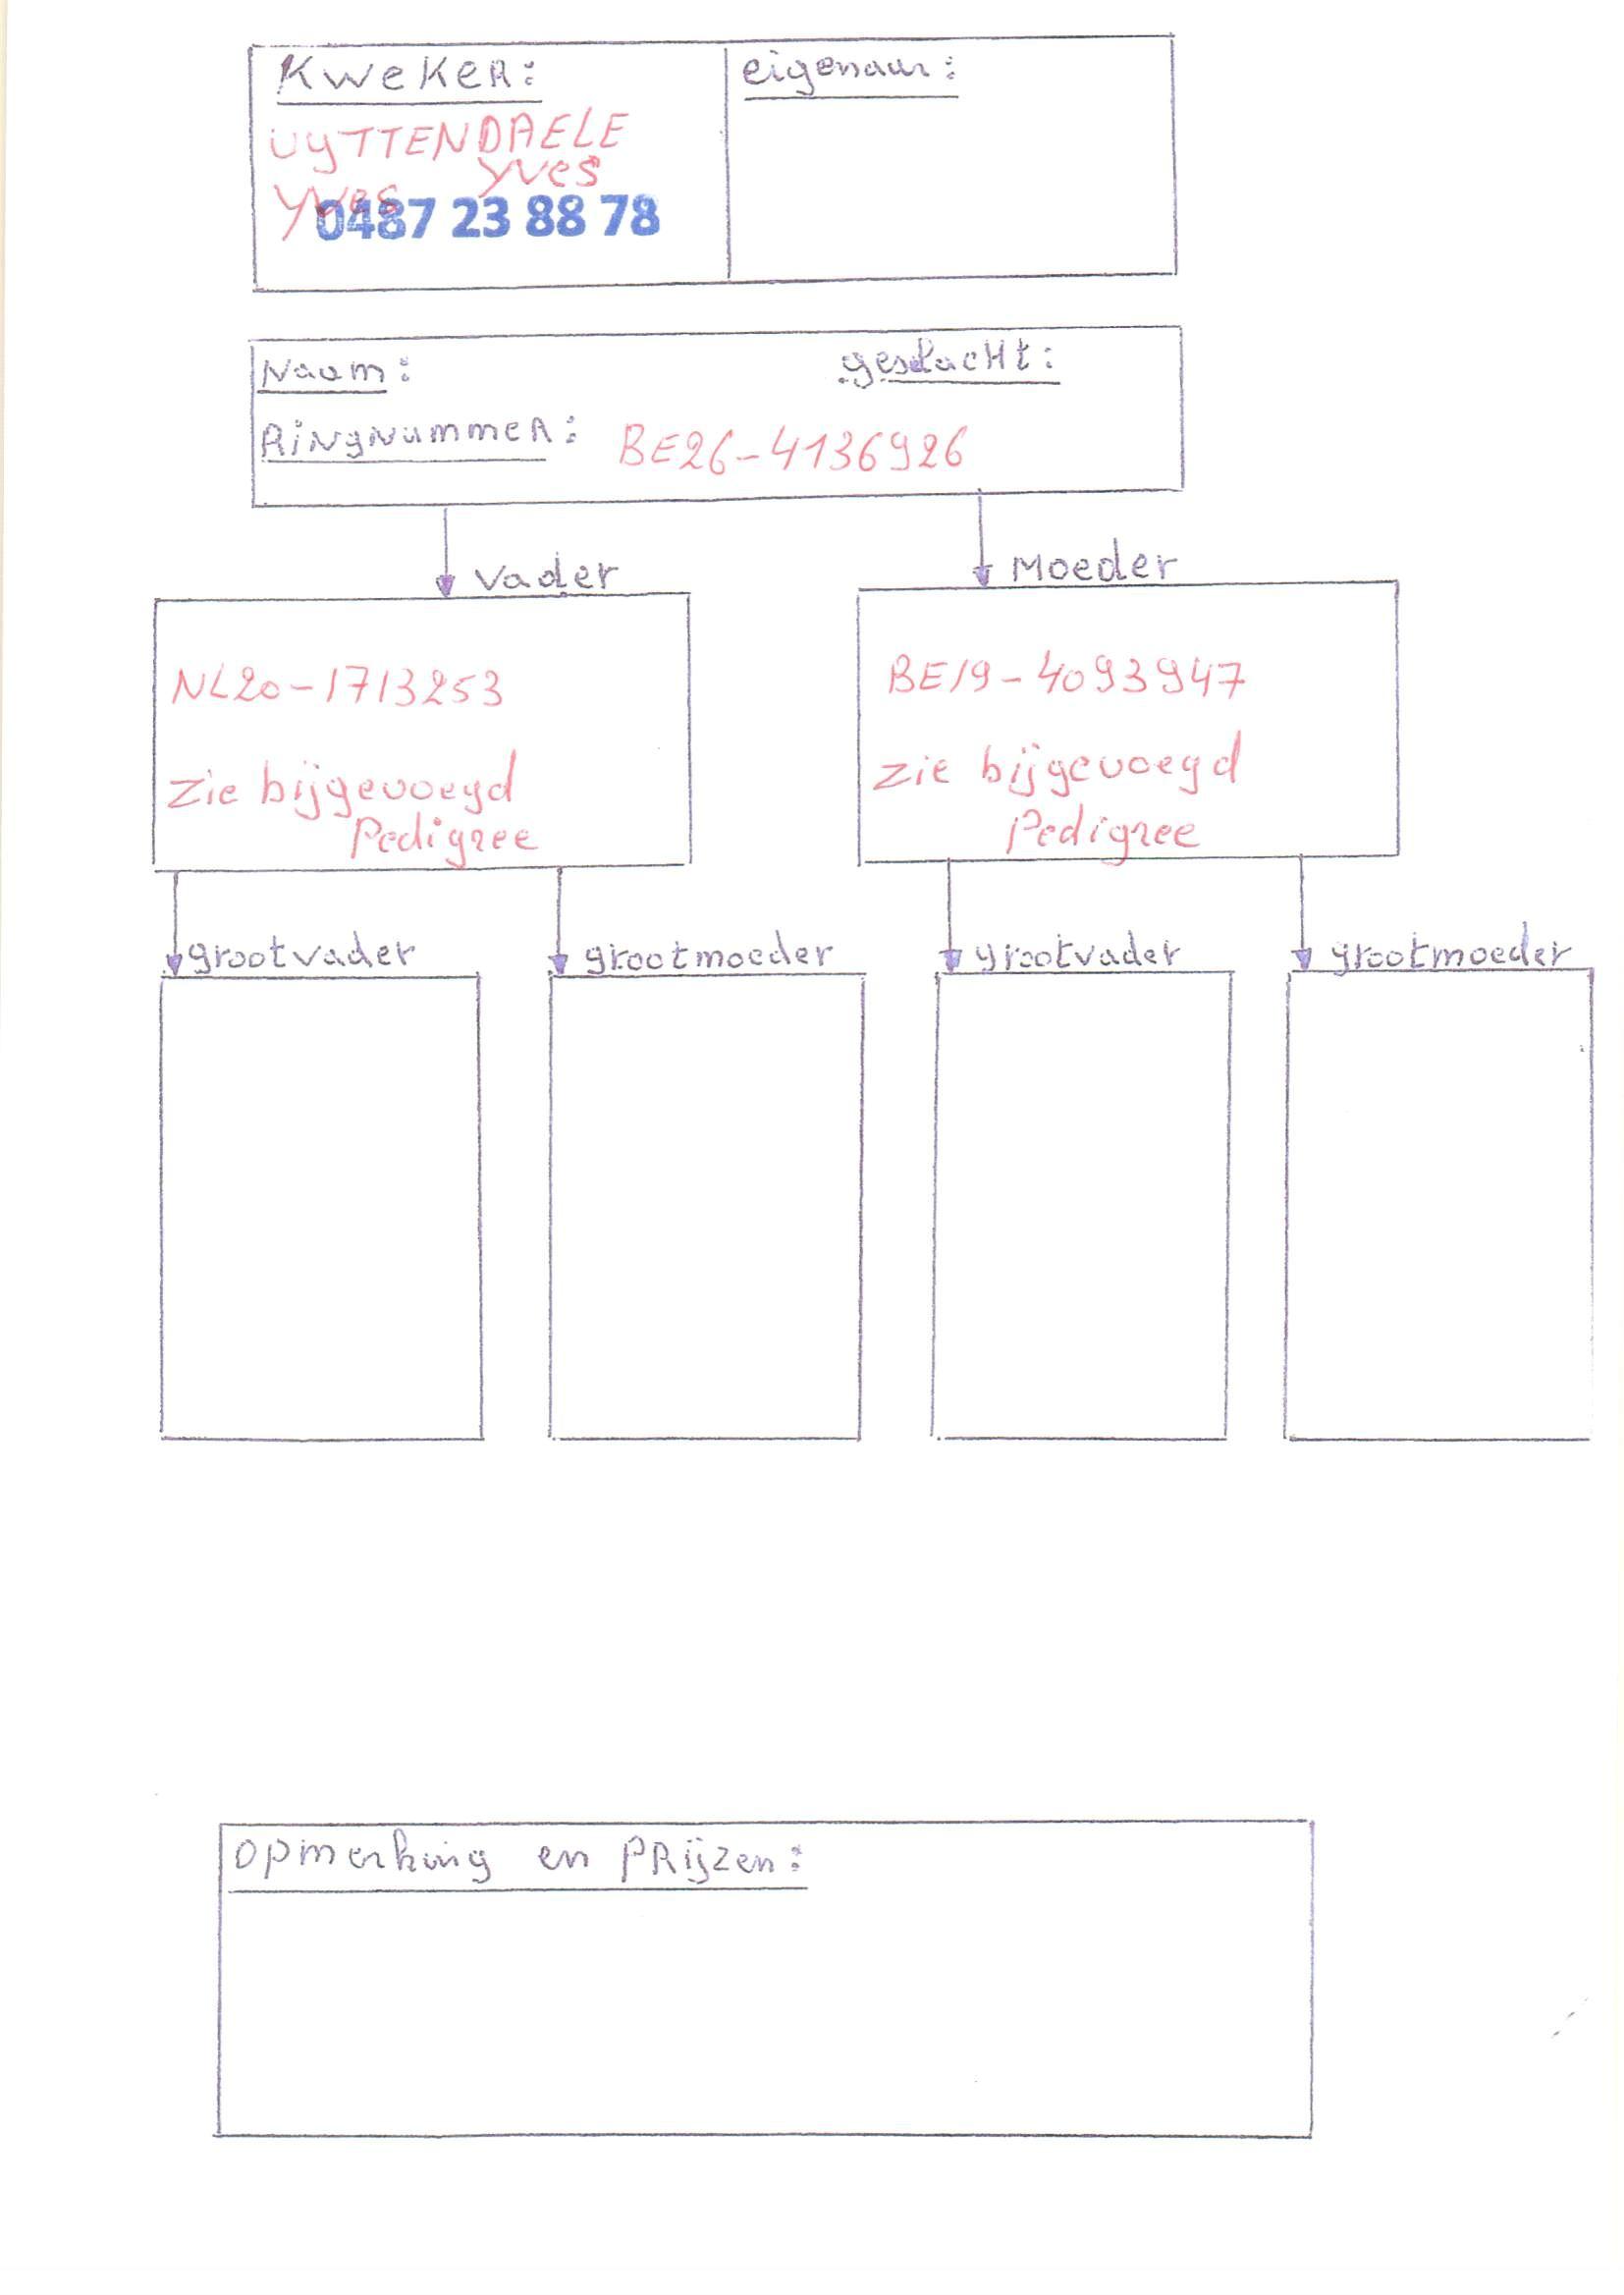 Kweker:
eigenaar:
UYTTENDAELE
Yves
Yves
0487 23 88 78
Naam:
geslacht:
Ringnummer: BE26-4136926
Vader
Moeder
NL20-1713253
BE19-4093947
Zie bijgevoegd
Pedigree
Zie bijgevoegd
Pedigree
grootvader
grootmoeder
grootvader
grootmoeder
Opmerking en PRijzen: